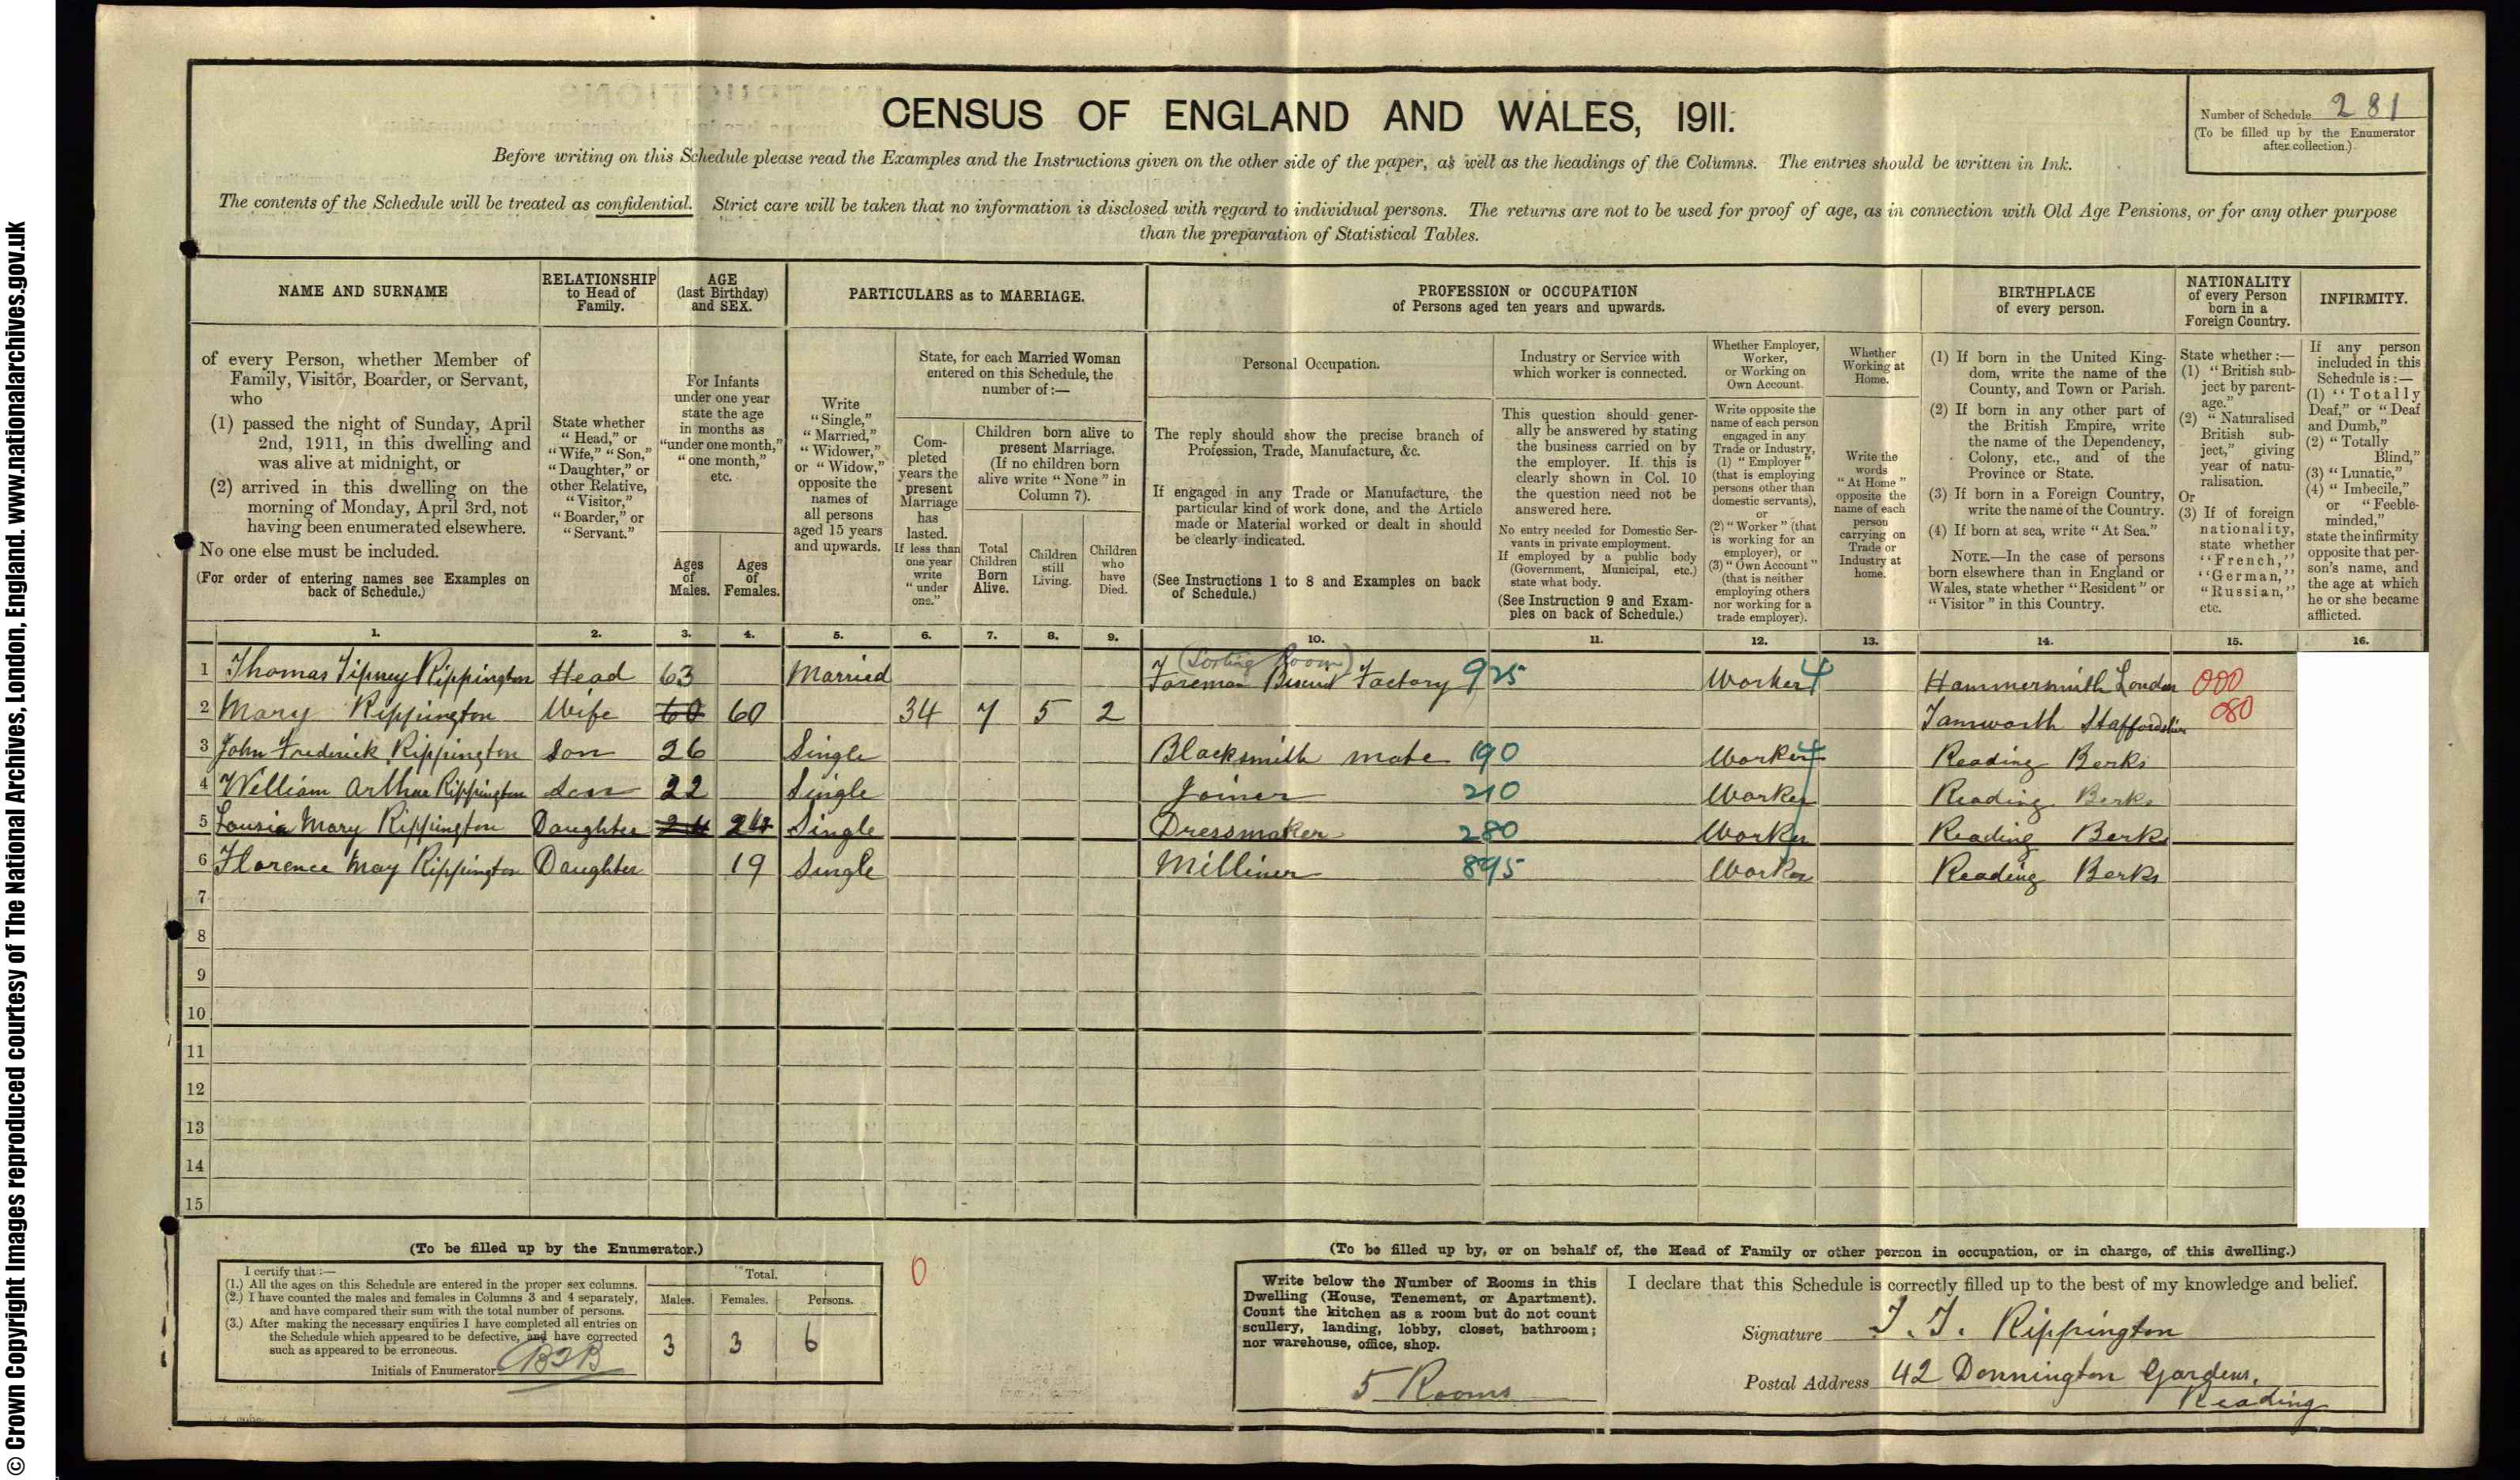 © Crown Copyright Images reproduced courtesy of The National Archives, London, England. www.nationalarchives.gov.uk
CENSUS OF ENGLAND AND WALES, 1911.
Number of Schedule 281
(To be filled up by the Enumerator after collection.)
Before writing on this Schedule please read the Examples and the Instructions given on the other side of the paper, as well as the headings of the Columns. The entries should be written in Ink.
The contents of the Schedule will be treated as confidential. Strict care will be taken that no information is disclosed with regard to individual persons. The returns are not to be used for proof of age, as in connection with Old Age Pensions, or for any other purpose
than the preparation of Statistical Tables.
NAME AND SURNAME
of every Person, whether Member of
Family, Visitor, Boarder, or Servant,
who
(1) passed the night of Sunday, April
2nd, 1911, in this dwelling and
was alive at midnight, or
(2) arrived in this dwelling on the
morning of Monday, April 3rd, not
having been enumerated elsewhere.
No one else must be included.
(For order of entering names see Examples on
back of Schedule.)
RELATIONSHIP
to Head of
Family.
State whether
"Head," or
"Wife," "Son,"
"Daughter," or
other Relative,
"Visitor,"
"Boarder," or
"Servant."
AGE
(last Birthday)
and SEX.
For Infants
under one year
state the age
in months as
"under one month,"
"one month,"
etc.
Ages
of
Males.
Ages
of
Females.
PARTICULARS as to MARRIAGE.
Write
"Single,"
"Married,"
"Widower,"
or "Widow,"
opposite the
names of
all persons
aged 15 years
and upwards.
State, for each Married Woman
entered on this Schedule, the
number of:—
Com-
pleted
years the
present
Marriage
has
lasted.
If less than
one year
write
"under
one."
Children born alive to
present Marriage.
(If no children born
alive write "None" in
Column 7).
Total
Children
Born
Alive.
Children
still
Living.
Children
who
have
Died.
PROFESSION or OCCUPATION
of Persons aged ten years and upwards.
Personal Occupation.
The reply should show the precise branch of
Profession, Trade, Manufacture, &c.
If engaged in any Trade or Manufacture, the
particular kind of work done, and the Article
made or Material worked or dealt in should
be clearly indicated.
(See Instructions 1 to 8 and Examples on back
of Schedule.)
Industry or Service with
which worker is connected.
This question should gener-
ally be answered by stating
the business carried on by
the employer. If this is
clearly shown in Col. 10
the question need not be
answered here.
No entry needed for Domestic Ser-
vants in private employment.
If employed by a public body
(Government, Municipal, etc.)
state what body.
(See Instruction 9 and Exam-
ples on back of Schedule.)
Whether Employer,
Worker,
or Working on
Own Account.
Write opposite the
name of each person
engaged in any
Trade or Industry,
(1) "Employer"
(that is employing
persons other than
domestic servants),
or
(2) "Worker" (that
is working for an
employer), or
(3) "Own Account"
(that is neither
employing others
nor working for a
trade employer).
Whether
Working at
Home.
Write the
words
"At Home"
opposite the
name of each
person
carrying on
Trade or
Industry at
home.
BIRTHPLACE
of every person.
(1) If born in the United King-
dom, write the name of the
County, and Town or Parish.
(2) If born in any other part of
the British Empire, write
the name of the Dependency,
Colony, etc., and of the
Province or State.
(3) If born in a Foreign Country,
write the name of the Country.
(4) If born at sea, write "At Sea."
NOTE.—In the case of persons
born elsewhere than in England or
Wales, state whether "Resident" or
"Visitor" in this Country.
NATIONALITY
of every Person
born in a
Foreign Country.
State whether:—
(1) "British sub-
ject by parent-
age."
(2) "Naturalised
British sub-
ject," giving
year of natu-
ralisation.
Or
(3) If of foreign
nationality,
state whether
"French,"
"German,"
"Russian,"
etc.
INFIRMITY.
If any person
included in this
Schedule is:—
(1) "Totally
Deaf," or "Deaf
and Dumb,"
(2) "Totally
Blind,"
(3) "Lunatic,"
(4) "Imbecile,"
or "Feeble-
minded,"
state the infirmity
opposite that per-
son's name, and
the age at which
he or she became
afflicted.
1. 2. 3. 4. 5. 6. 7. 8. 9. 10. 11. 12. 13. 14. 15. 16.
(Sorting Room)
1 Thomas Tipney Rippington Head 63 Married Foreman Biscuit Factory 925 Worker Hammersmith London 000
2 Mary Rippington Wife 60 60 34 7 5 2 Tamworth Staffordshire 080
3 John Frederick Rippington Son 26 Single Blacksmith mate 190 Worker Reading Berks
4 William Arthur Rippington Son 22 Single Joiner 210 Worker Reading Berks
5 Lousia Mary Rippington Daughter 24 24 Single Dressmaker 280 Worker Reading Berks
6 Florence May Rippington Daughter 19 Single Milliner 895 Worker Reading Berks
7
8
9
10
11
12
13
14
15
(To be filled up by the Enumerator.)
I certify that:—
(1.) All the ages on this Schedule are entered in the proper sex columns.
(2.) I have counted the males and females in Columns 3 and 4 separately,
and have compared their sum with the total number of persons.
(3.) After making the necessary enquiries I have completed all entries on
the Schedule which appeared to be defective, and have corrected
such as appeared to be erroneous.
Initials of Enumerator
Total.
Males. Females. Persons.
3 3 6
0
(To be filled up by, or on behalf of, the Head of Family or other person in occupation, or in charge, of this dwelling.)
Write below the Number of Rooms in this
Dwelling (House, Tenement, or Apartment).
Count the kitchen as a room but do not count
scullery, landing, lobby, closet, bathroom;
nor warehouse, office, shop.
5 Rooms
I declare that this Schedule is correctly filled up to the best of my knowledge and belief.
Signature T. T. Rippington
Postal Address 42 Donnington Gardens,
Reading